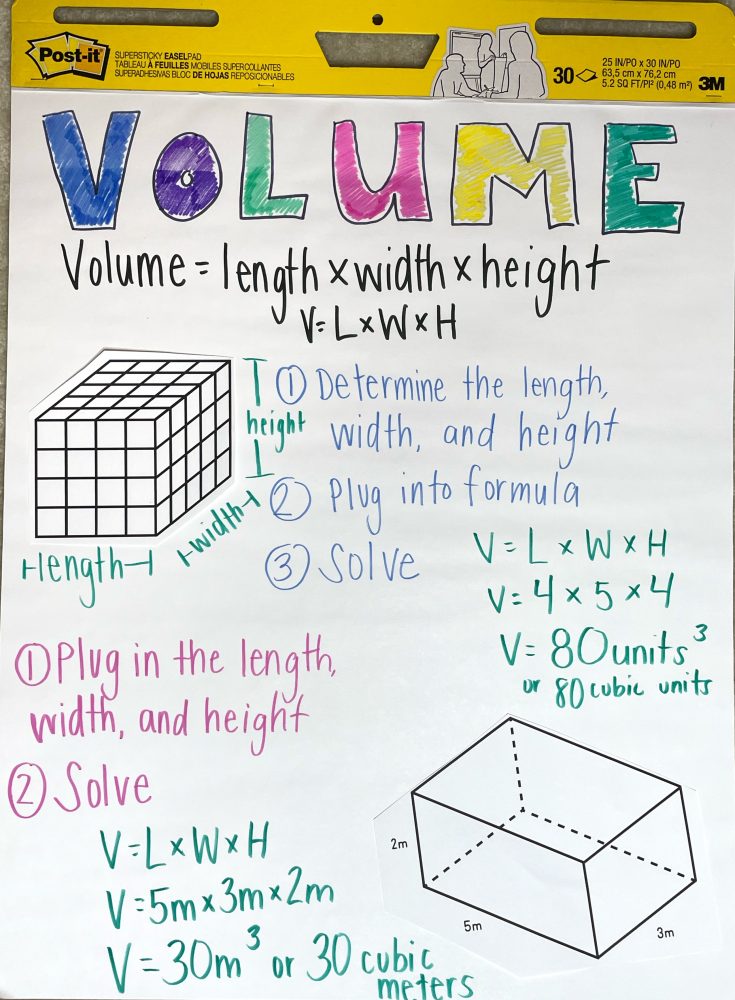 Post-it
SUPERSTICKY EASELPAD
TABLEAU À FEUILLES MOBILES SUPERCOLLANTES
SUPERADHESIVAS BLOC DE HOJAS REPOSICIONABLES
30
25 IN/PO x 30 IN/PO
63,5 cm x 76,2 cm
5.2 SQ FT/PI² (0,48 m²)
3M
VOLUME
Volume = length x width x height
V = L x W x H
height
width
length
① Determine the length,
width, and height
② Plug into formula
③ Solve
V = L x W x H
V = 4 x 5 x 4
V = 80 units³
or 80 cubic units
① Plug in the length,
width, and height
② Solve
V = L x W x H
V = 5m x 3m x 2m
V = 30m³ or 30 cubic
meters
2m
5m
3m